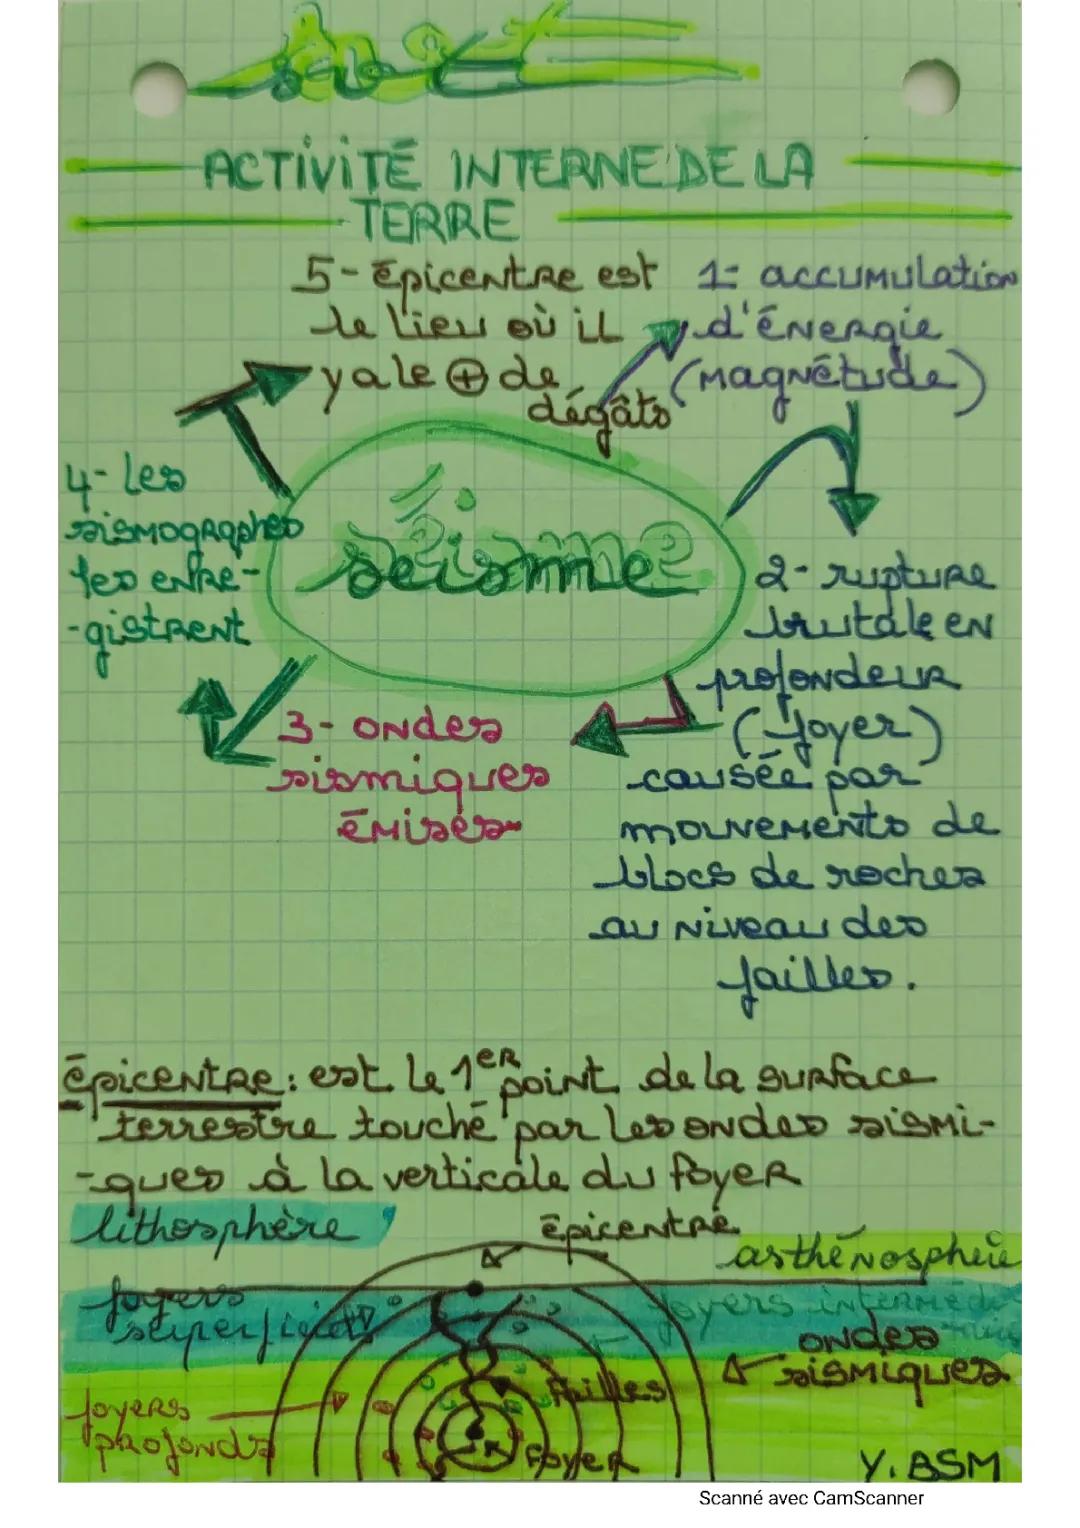 ACTIVITÉ INTERNE DE LA
TERRE
5- épicentre est
le lieu où il
y a le ⊕ de
dégâts
1- accumulation
d'énergie
(magnétude)
2- rupture
brutale en
profondeur
(foyer)
causée par
mouvements de
blocs de roches
au niveau des
failles.
3- ondes
sismiques
émises
4- les
sismographes
les enre-
-gistrent
séisme
épicentre : est le 1er point de la surface
terrestre touché par les ondes sismi-
-ques à la verticale du foyer
lithosphère
épicentre
asthénosphère
foyers
superficiels
foyers intermédi-
aires
ondes
sismiques
failles
foyers
profonds
Foyer
Y. BSM
Scanné avec CamScanner